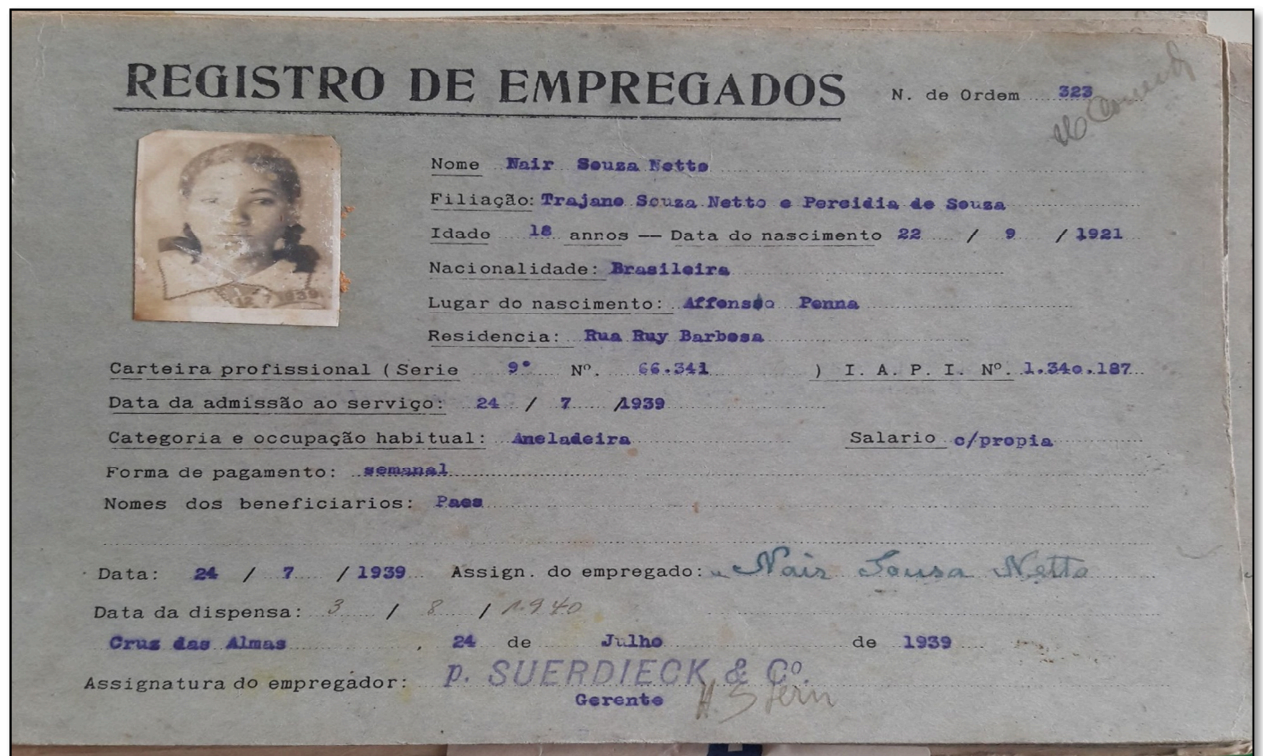 REGISTRO DE EMPREGADOS N. de Ordem 323
Nome Nair Souza Netto
Filiação: Trajano Souza Netto e Percidia de Souza
Idade 18 annos — Data do nascimento 22 / 9 / 1921
Nacionalidade: Brasileira
Lugar do nascimento: Affonso Penna
Residencia: Rua Ruy Barbosa
12 7 1939
Carteira profissional (Serie 9ª Nº. 66.341 ) I. A. P. I. Nº. 1.340.187
Data da admissão ao serviço: 24 / 7 / 1939
Categoria e occupação habitual: Aneladeira Salario c/propia
Forma de pagamento: semanal
Nomes dos beneficiarios: Paes
Data: 24 / 7 / 1939 Assign. do empregado: Nair Sousa Netto
Data da dispensa: 3 / 8 / 1940
Cruz das Almas . 24 de Julho de 1939
Assignatura do empregador: p. SUERDIECK & Cº.
Gerente H. Stern